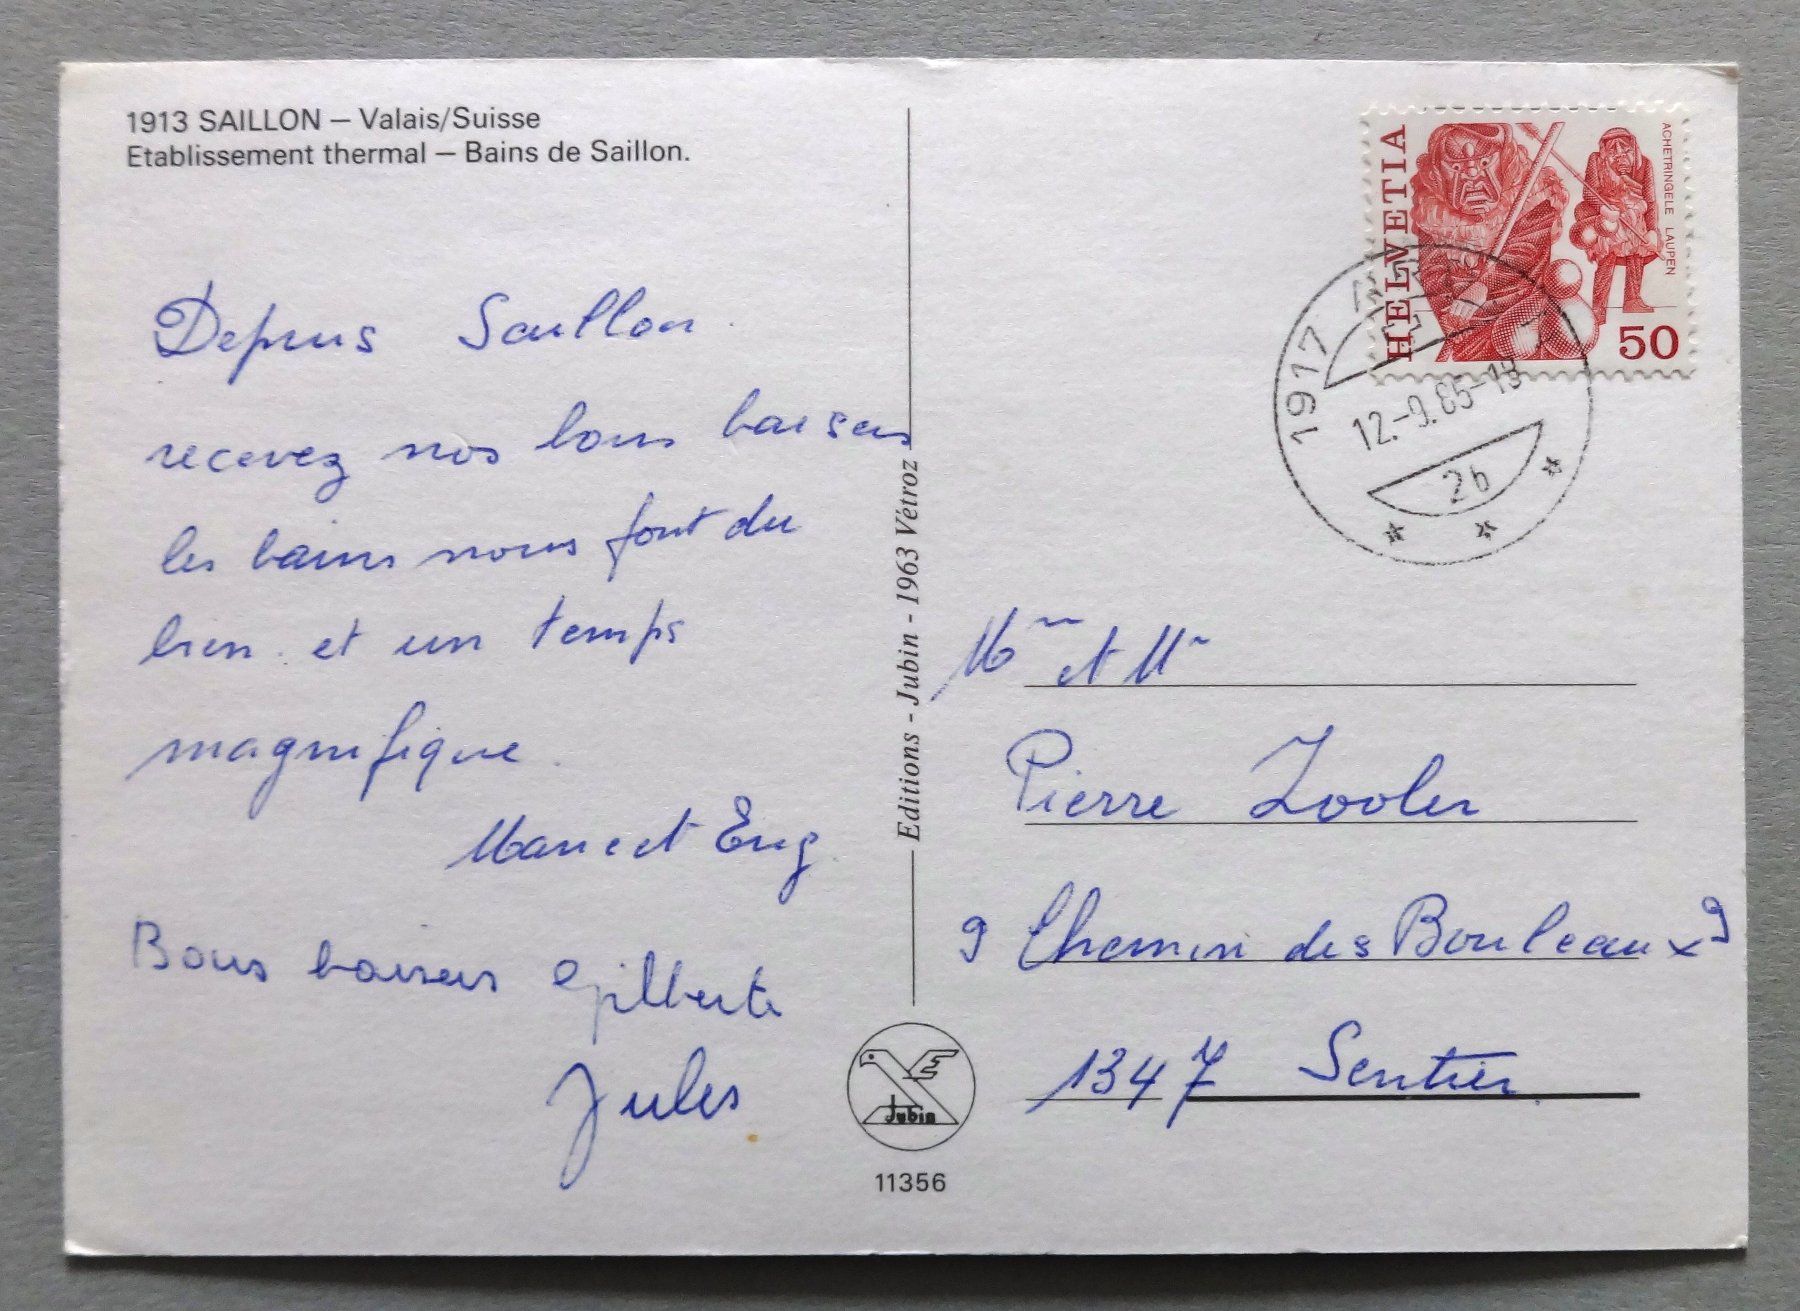 1913 SAILLON – Valais/Suisse
Etablissement thermal – Bains de Saillon.
Depuis Saillon.
recevez nos bons baisers
les bains nous font du
bien. et un temps
magnifique.
et Eug
Bons baisers Gilberte
Jules
Editions - Jubin - 1963 Vétroz
Jubin
11356
HELVETIA
ACHETRINGELE LAUPEN
50
1917
12.-9.85-18
2b
Mme et Mr
Pierre Zooler
9 Chemin des Bouleaux 9
1347 Sentier.